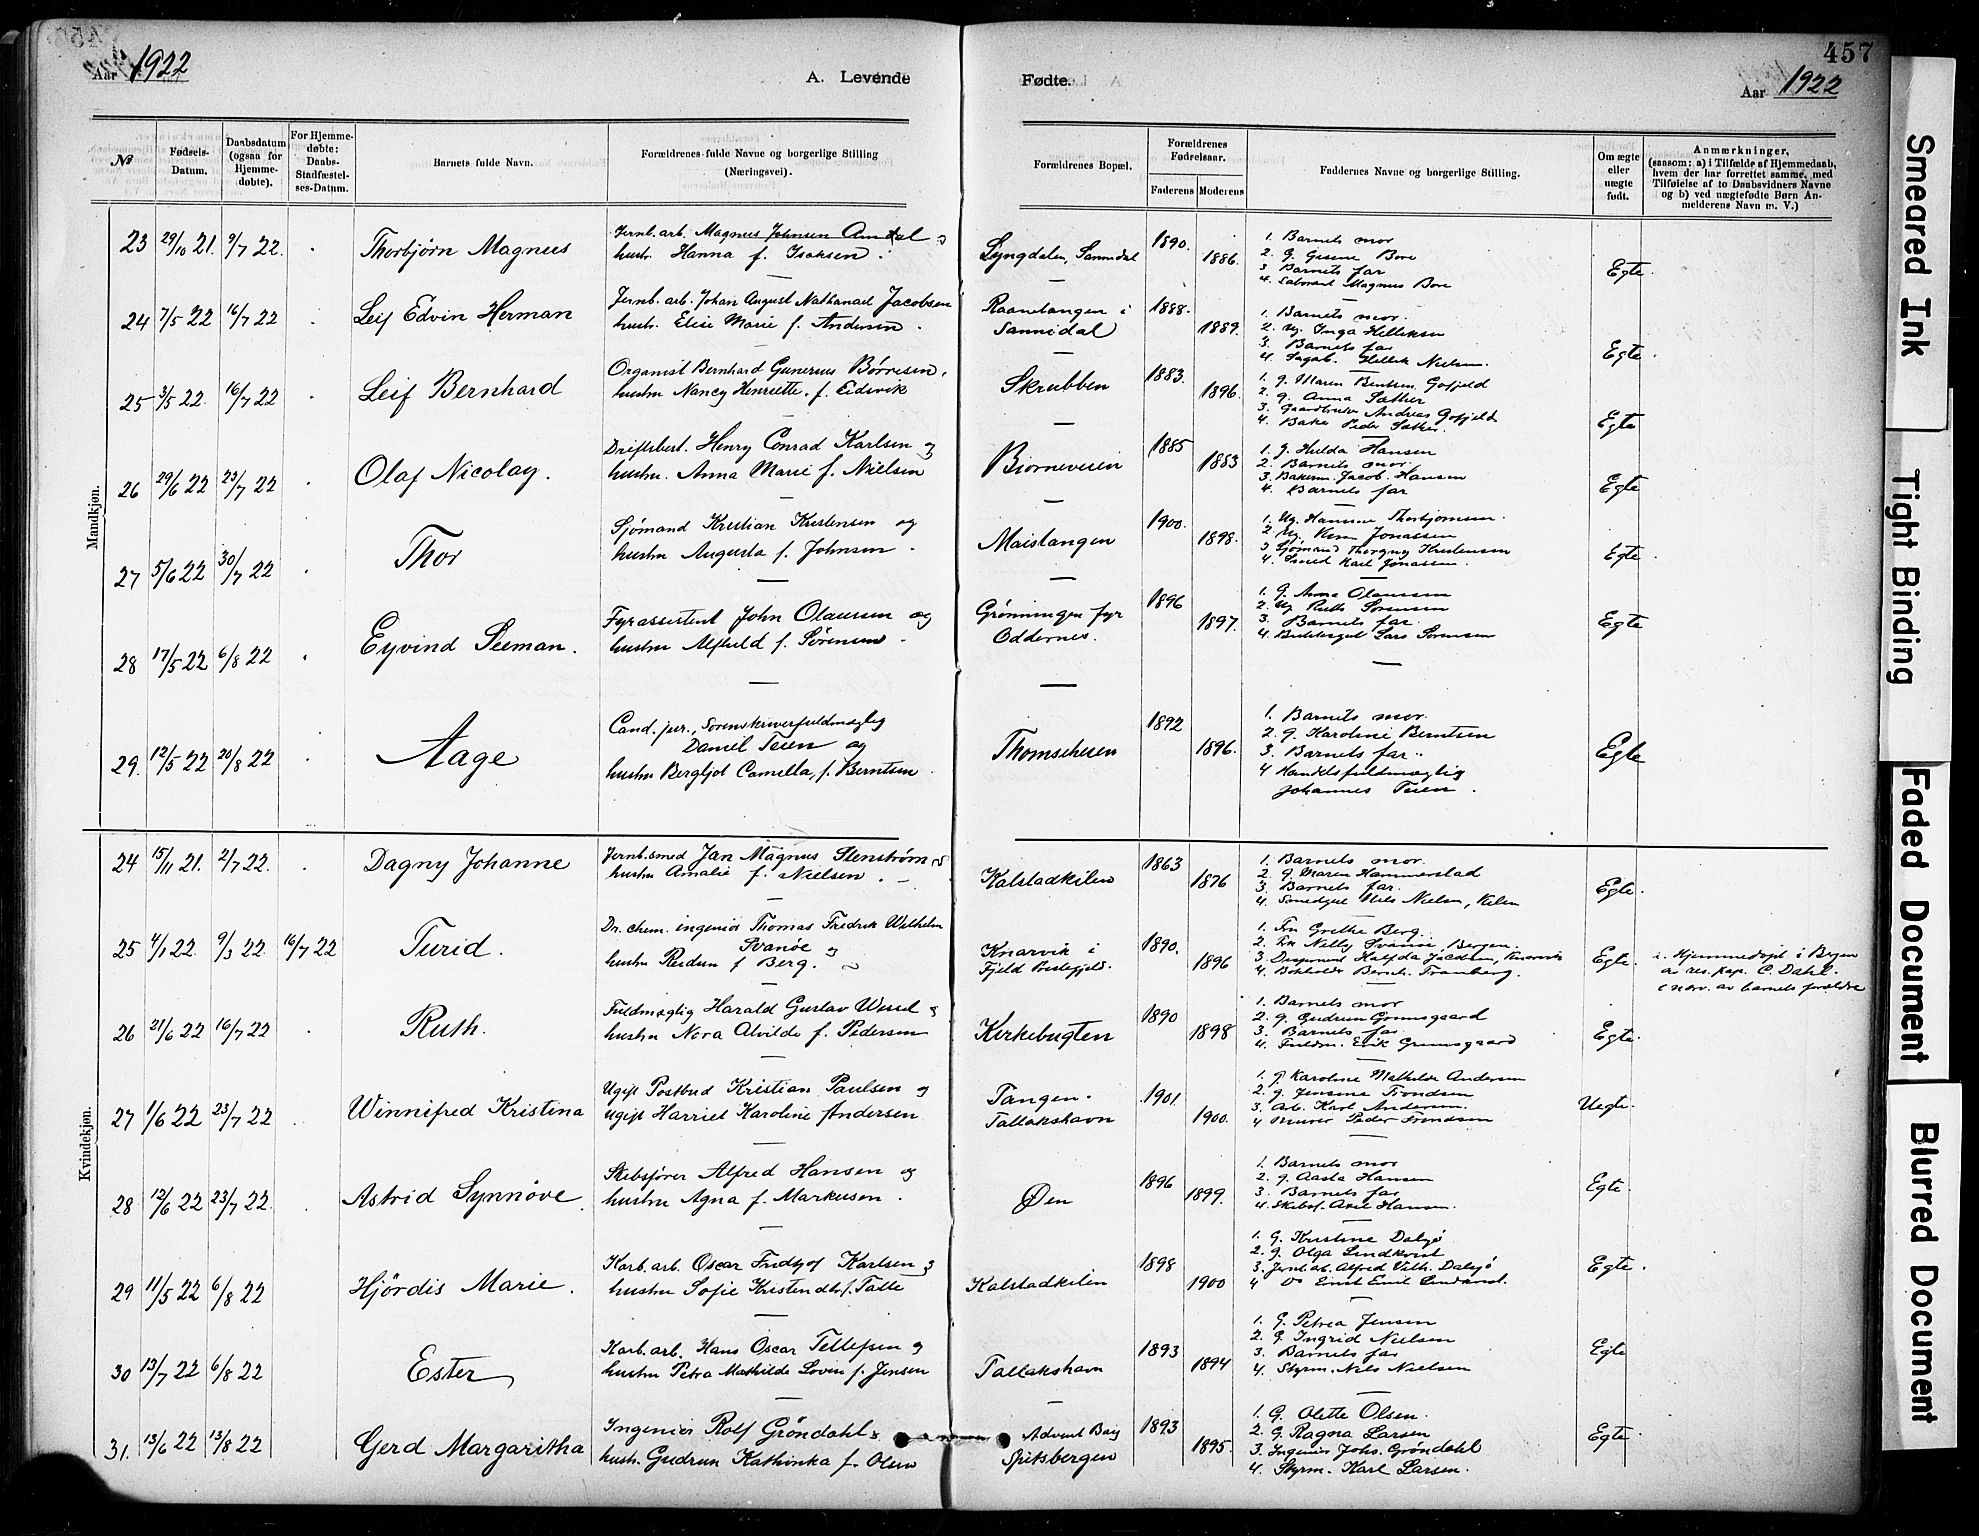 Aar 1922
A. Levende
Fødte.
457
Aar 1922
№
Fødsels-Datum.
Daabsdatum (ogsaa for Hjemme-døbte).
For Hjemme-døbte: Daabs-Stadfæstel-ses-Datum.
Barnets fulde Navn.
Forældrenes fulde Navne og borgerlige Stilling (Næringsvei).
Forældrenes Bopæl.
Forældrenes Fødselsaar.
Faderens Moderens
Faddernes Navne og borgerlige Stilling.
Om ægte eller uægte født.
Anmærkninger,
(saasom: a) i Tilfælde af Hjemmedaab, hvem der har forrettet samme, med Tilføielse af to Daabsvidners Navne og b) ved uægtefødte Børn An-melderens Navn m. V.)
Mandkjøn.
23 29/10 21. 9/7 22. Thorbjørn Magnus
Jernb. arb. Magnus Johnsen Amdal
hustr. Hanna f. Isaksen.
Lyngdalen, Sannidal 1890. 1886.
1. Barnets mor
2. G. Gisene Boe
3. Barnets far
4. Magnus Boe
Egte.
24 7/5 22 16/7 22 Leif Edvin Herman
Jernb. arb. Johan August Nathanael Jacobsen
hustr. Elise Marie f. Andersen.
Raanetangen i Sannidal 1888. 1889.
1. Barnets mor.
2. Ug. Inga Helleksen
3. Barnets far
4. Sagab. Hellek Nielsen.
Egte.
25 3/5 22. 16/7 22 Leif Bernhard
Organist Bernhard Gunerius Børresen,
hustru Nancy Henriette f. Eidsvik
Skrubben 1883. 1896.
1. g. Maren Bentsen Gofjeld
2. g. Anna Sæther
3. Gaardbruker Andreas Gofjeld
4. Baker Peder Sæther.
Egte
26 29/6 22 23/7 22 Olaf Nicolay.
Driftsbest. Henry Conrad Karlsen og
hustru. Anna Marie f. Nielsen
Bjørneveien 1885 1883
1. g. Hulda Hansen
2. Barnets mor
3. Bakerm. Jacob. Hansen
4. Barnets far
Egte
27 5/6 22 30/7 22 Thor
Sjømand Kristian Kristensen og
hustru Augusta f. Johnsen.
Maistangen 1900. 1898.
1. Ug. Hansine Thorbjørnsen.
2. Ug. Jonassen
3 Sjømand Thorgny Kristensen
4. Smed Karl Jonassen.
Egte.
28 17/5 22 6/8 22 Eyvind Seeman.
Fyrassistent John Olaussen og
hustru Alfhild f. Sørensen.
Grønningen fyr
Oddernes. 1896 1897.
1. G. Anna Olaussen
2. Ug Ruth Sørensen
3. Barnets far.
4. Lars Sørensen
Egte
29. 12/5 22 20/8 22 Aage
Cand. jur., Sorenskriverfuldmægtig
Daniel Teien og
hustru Bergljot Camilla, f. Berntsen
Thomschesen 1892 1896.
1. Barnets mor.
2. g. Karoline Berntsen
3. Barnets far.
4 Handelsfuldmægtig
Johannes Teien.
Egte
Kvindekjøn.
24 15/11 21. 2/7 22. Dagny Johanne
Jernb.smed Jan Magnus Stenstrøm og
hustru Amalie f. Nielsen.
Kalstadkilen 1863 1876
1. Barnets mor.
2. g. Maren Hammerstad
3. Barnets far.
4. Nils Nielsen, Kilen
Egte.
25 4/1 22. 9/3 22. 16/7 22 Turid.
Dr. chem. ingeniør Thomas Fredrik Wilhelm
Svanøe og
hustru Reidun f Berg.
Knarvik i
Fjeld Prestegjeld. 1890. 1896
1. Fru Grethe Berg.
2. Frk Nelly Svanøe, Bergen.
3. Halfdan Jacobsen, Knarvik
4. Bokholder Bernh. Tranberg.
Egte.
i. Hjemmedøpt i Bergen
av res. kap. C. Dahl.
i nærv. av barnets forældre
26 21/6 22 16/7 22 Ruth.
Fuldmægtig Harald Gustav Wessel og
hustru Nora Alvilde f. Pedersen
Kirkebugten 1890 1898
1. Barnets mor
2. g. Gudrun Grunsgaard
3. Barnets far
4. Fuldm. Erik Grunsgaard
Egte.
27 1/6 22 23/7 22 Winnifred Kristina
Ugift Postbud Kristian Paulsen og
Ugift Harriet Karoline Andersen
Tangen.
Tallakshavn 1901. 1900.
1. g. Karoline Mathilde Andersen
2. g. Jensine Trondsen
3. Arb. Karl Andersen.
4 Murer Peder Trondsen
Uegte.
28 12/6 22 23/7 22. Astrid Synnøve
Skibsfører Alfred Hansen og
hustru Agna f. Markusen.
Øen 1896 1899.
1. Barnets mor
2. g. Aasta Hansen
3. Barnets far
4. Skibsf. Axel Hansen.
Egte.
29 11/5 22 6/8 22 Hjördis Marie.
Karb. arb. Oscar Fridtjof Karlsen og
hustru Sofie Kristendtr. f. Tatte
Kalstadkilen 1898 1900
1. G. Kristine Dalsjø
2. g. Olga Lindkvist
3. Jernb. arb. Alfred Vilh. Dalsjø
4 Do Ernst Emil Lindkvist.
Egte.
30 13/7 22 6/8 22 Ester
Karb. arb. Hans Oscar Tellefsen og
hustru Petra Mathilde Lovise f. Jensen
Tallakshavn 1893 1894
1. G. Petrea Jensen
2. G. Ingrid Nielsen
3. Barnets far
4. Styrm. Nils Nielsen
Egte
31. 13/6 22 13/8 22 Gerd Margaritha
Ingeniør Rolf Gröndahl &
hustr. Gudrun Kathinka f. Olsen
Advent Bay
Spitsbergen 1893 1895.
1. G. Olette Olsen.
2. G. Ragna Larsen
3. Ingeniør Johs. Gröndahl
4. Styrm. Karl Larsen.
Egte.
Smeared Ink
Tight Binding
Faded Document
Blurred Document